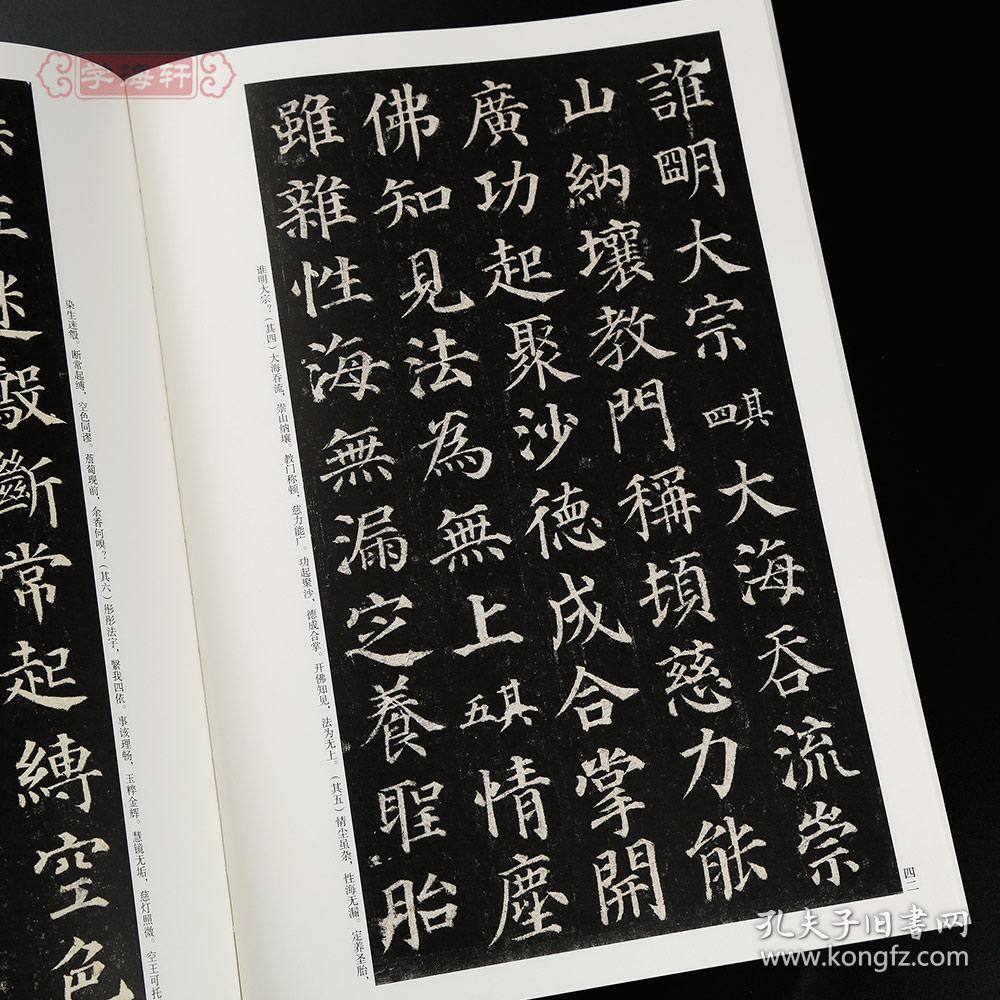 学海轩
誰明大宗其四大海吞流崇
山納壤教門稱頓慈力能
廣功起聚沙德成合掌開
佛知見法為無上其五情塵
雖雜性海無漏定養聖胎
谁明大宗？（其四）大海吞流，崇山纳壤。教门称顿，慈力能广。功起聚沙，德成合掌。开佛知见，法为无上。（其五）情尘虽杂，性海无漏。定养圣胎，
四二
生迷㲉斷常起縛空色
染生迷㲉。断常起缚，空色同谬。薝蔔现前，余香何嗅？（其六）彤彤法宇，繄我四依。事该理畅，玉粹金辉。慧镜无垢，慈灯照微。空王可托
孔夫子旧书网
www.kongfz.com